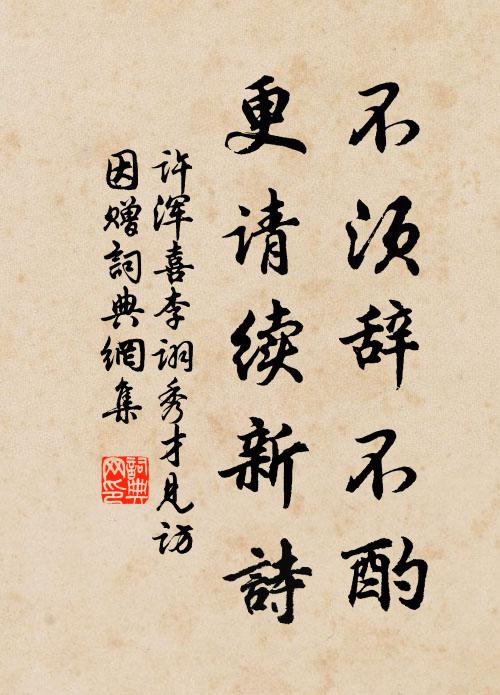 不须辞不酌
更请续新詩
许浑喜李诩秀才见访
因赠詞典網集
詞典網印